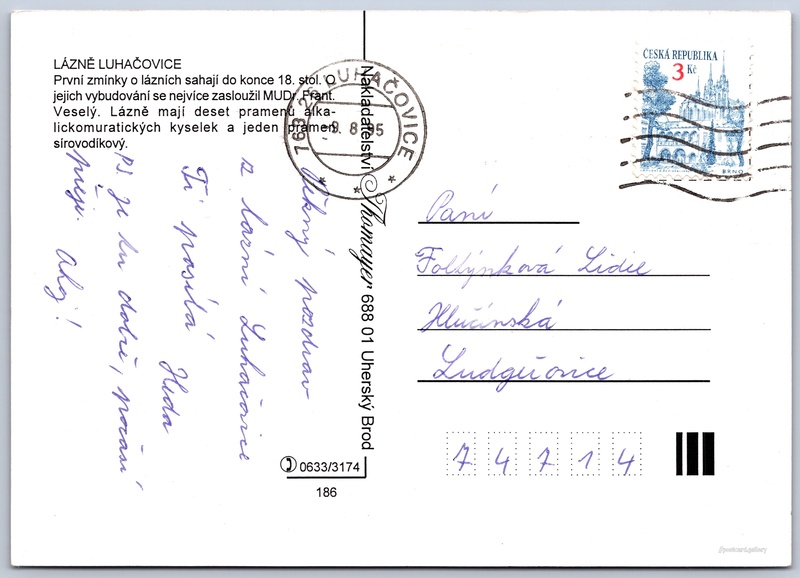 LÁZNĚ LUHAČOVICE
První zmínky o lázních sahají do konce 18. stol. O
jejich vybudování se nejvíce zasloužil MUDr. Frant.
Veselý. Lázně mají deset pramenů alka-
lickomuratických kyselek a jeden pramen
sírovodíkový.
Pěkný pozdrav
z lázní Luhačovice
Ti posílá
Heda
PS. Je tu dobře, počasí
přeje. Ahoj!
763 26 LUHAČOVICE
-9. 8. 95
Nakladatelství Thomayer 688 01 Uherský Brod
0633/3174
186
ČESKÁ REPUBLIKA
3 Kč
BRNO
Paní
Foltýnková Lidie
Hlučínská
Ludgeřovice
74714